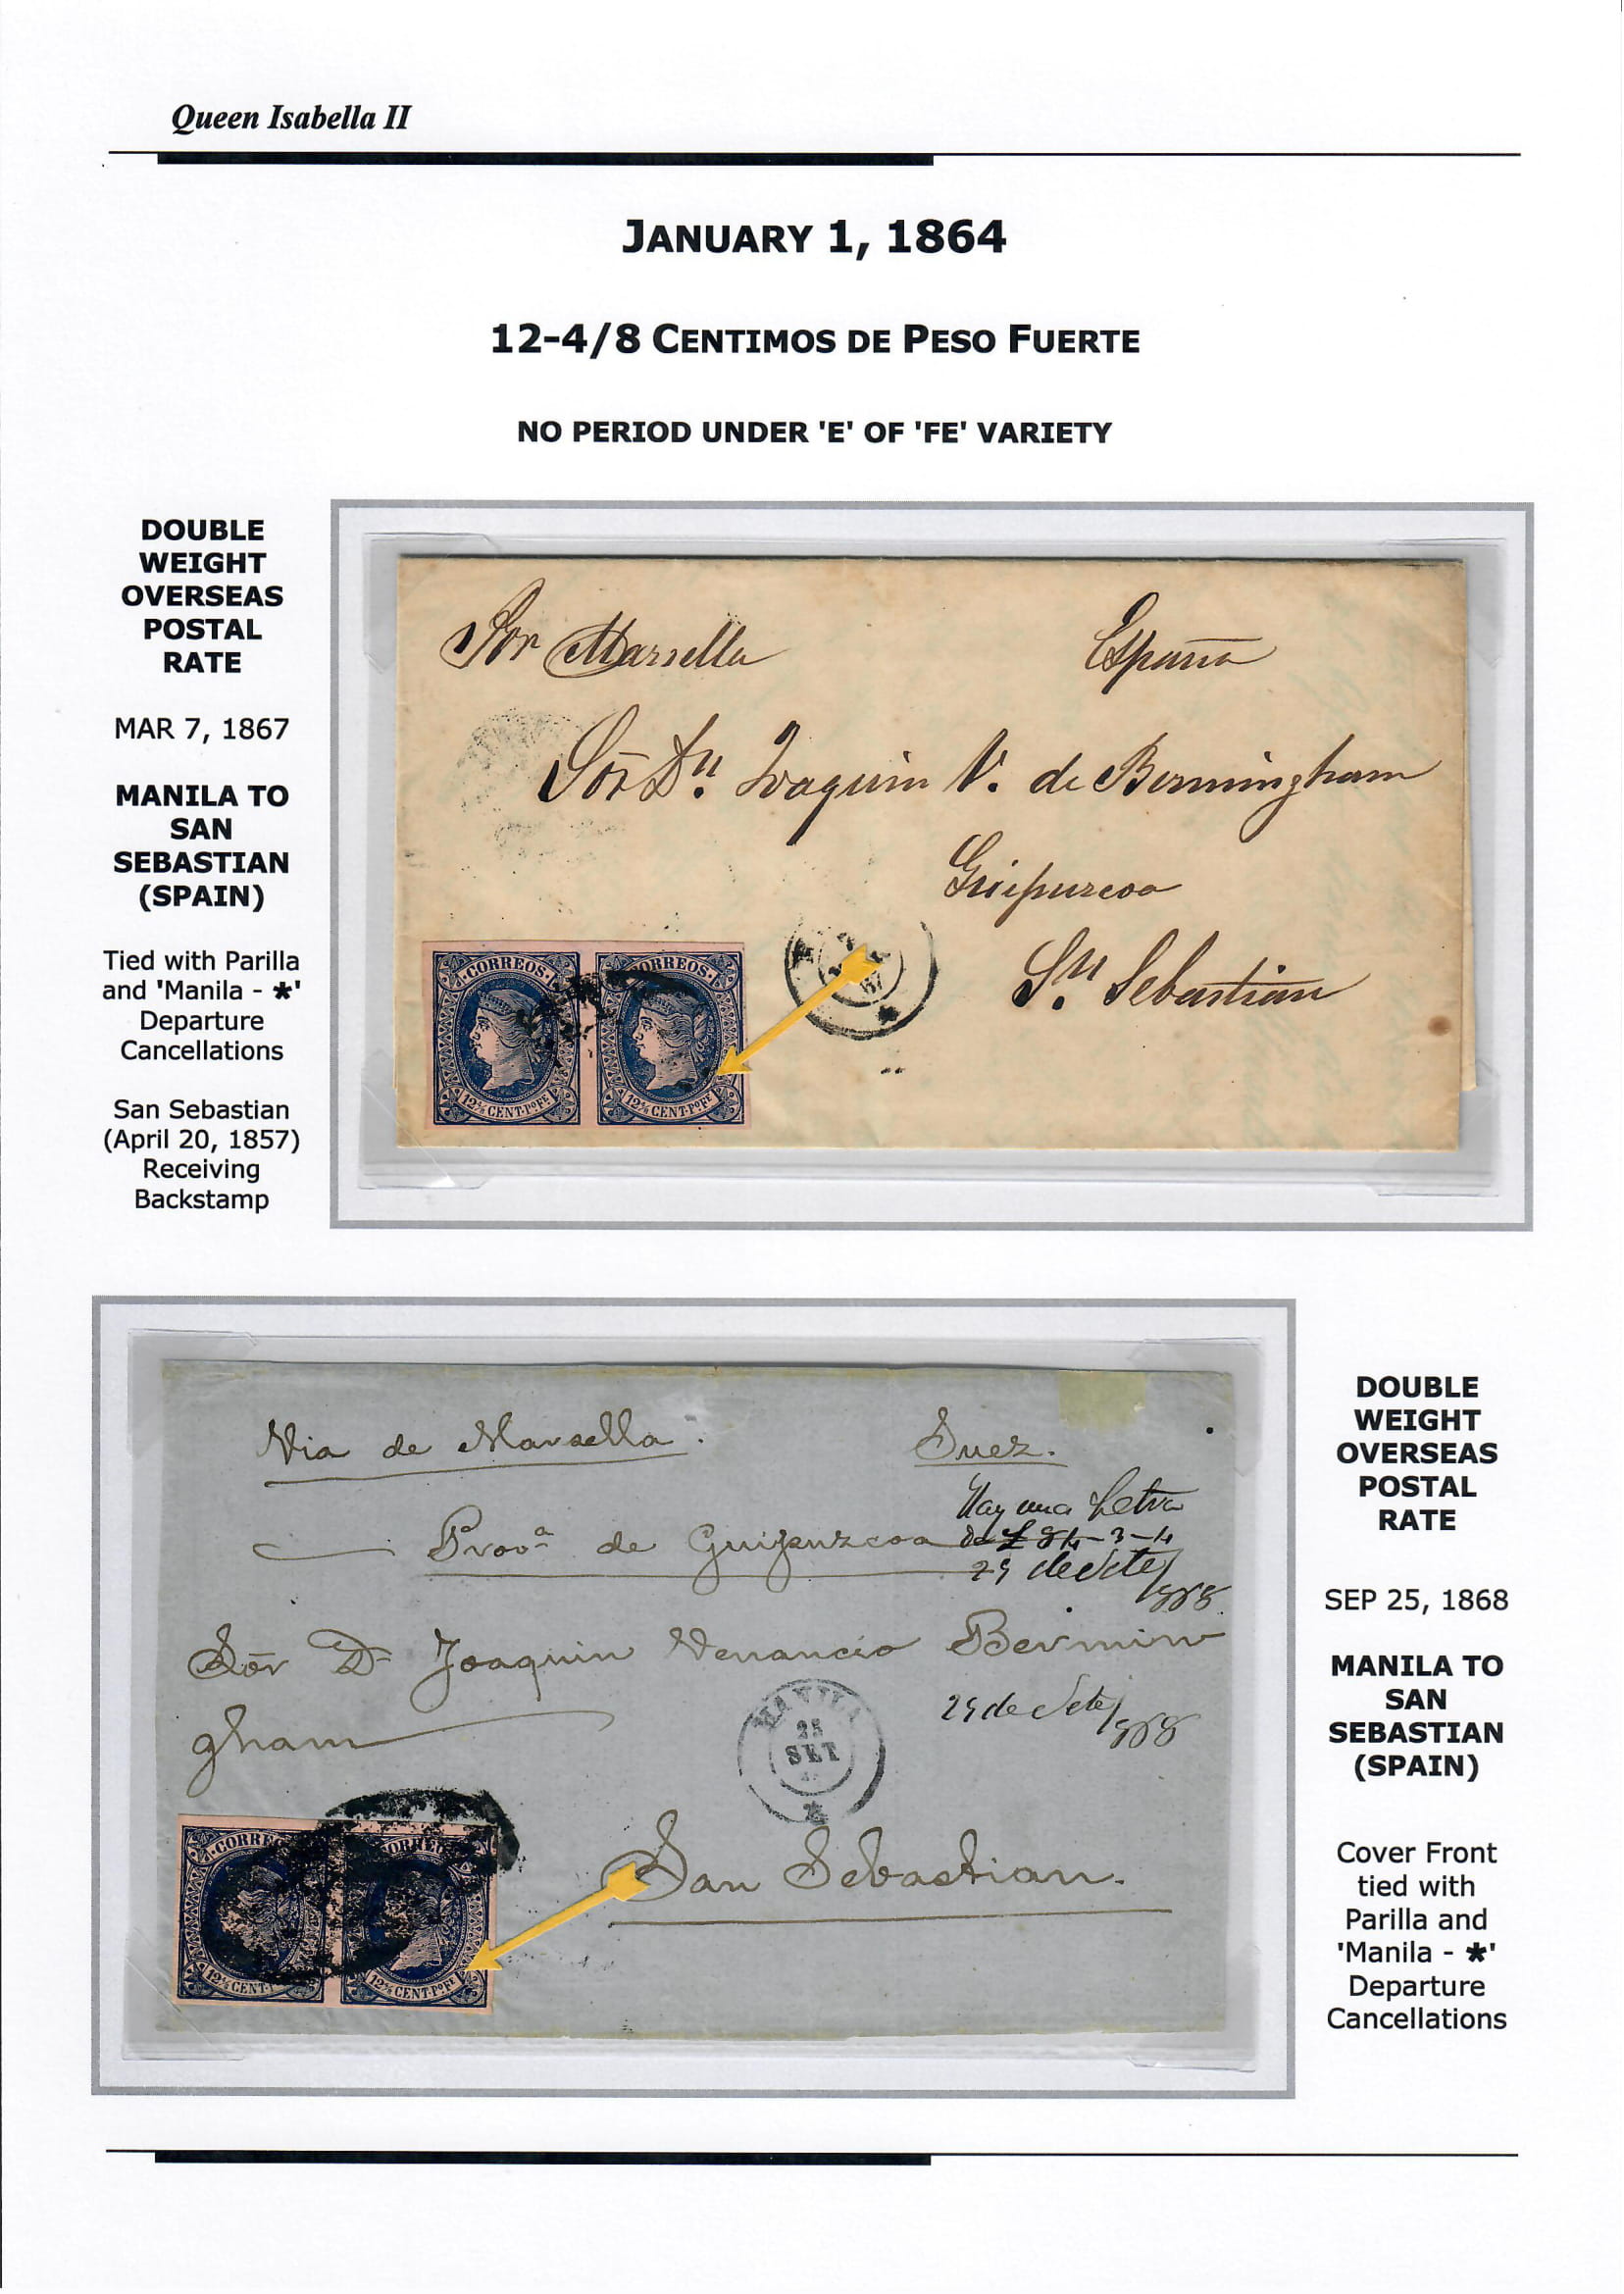 Queen Isabella II
JANUARY 1, 1864
12-4/8 CENTIMOS DE PESO FUERTE
NO PERIOD UNDER 'E' OF 'FE' VARIETY
DOUBLE
WEIGHT
OVERSEAS
POSTAL
RATE
MAR 7, 1867
MANILA TO
SAN
SEBASTIAN
(SPAIN)
Tied with Parilla
and 'Manila - *'
Departure
Cancellations
San Sebastian
(April 20, 1857)
Receiving
Backstamp
Por Marsella España
Sōr Dn. Joaquin V. de Bermingham
Guipuzcoa
Sn. Sebastian
CORREOS CORREOS
67
12 4/8 CENT. Po FE 12 4/8 CENT. Po FE
Via de Marsella. Suez.
Hay una Letra
de £ 84-3-4
25 de Sete/868
Provª de Guipuzcoa
Sōr D Joaquin Venancio Bermin
gham
25 de Sete/868
MANILA
25
SET
San Sebastian.
CORREOS CORREOS
12 4/8 CENT. 12 4/8 CENT. Po FE
DOUBLE
WEIGHT
OVERSEAS
POSTAL
RATE
SEP 25, 1868
MANILA TO
SAN
SEBASTIAN
(SPAIN)
Cover Front
tied with
Parilla and
'Manila - *'
Departure
Cancellations